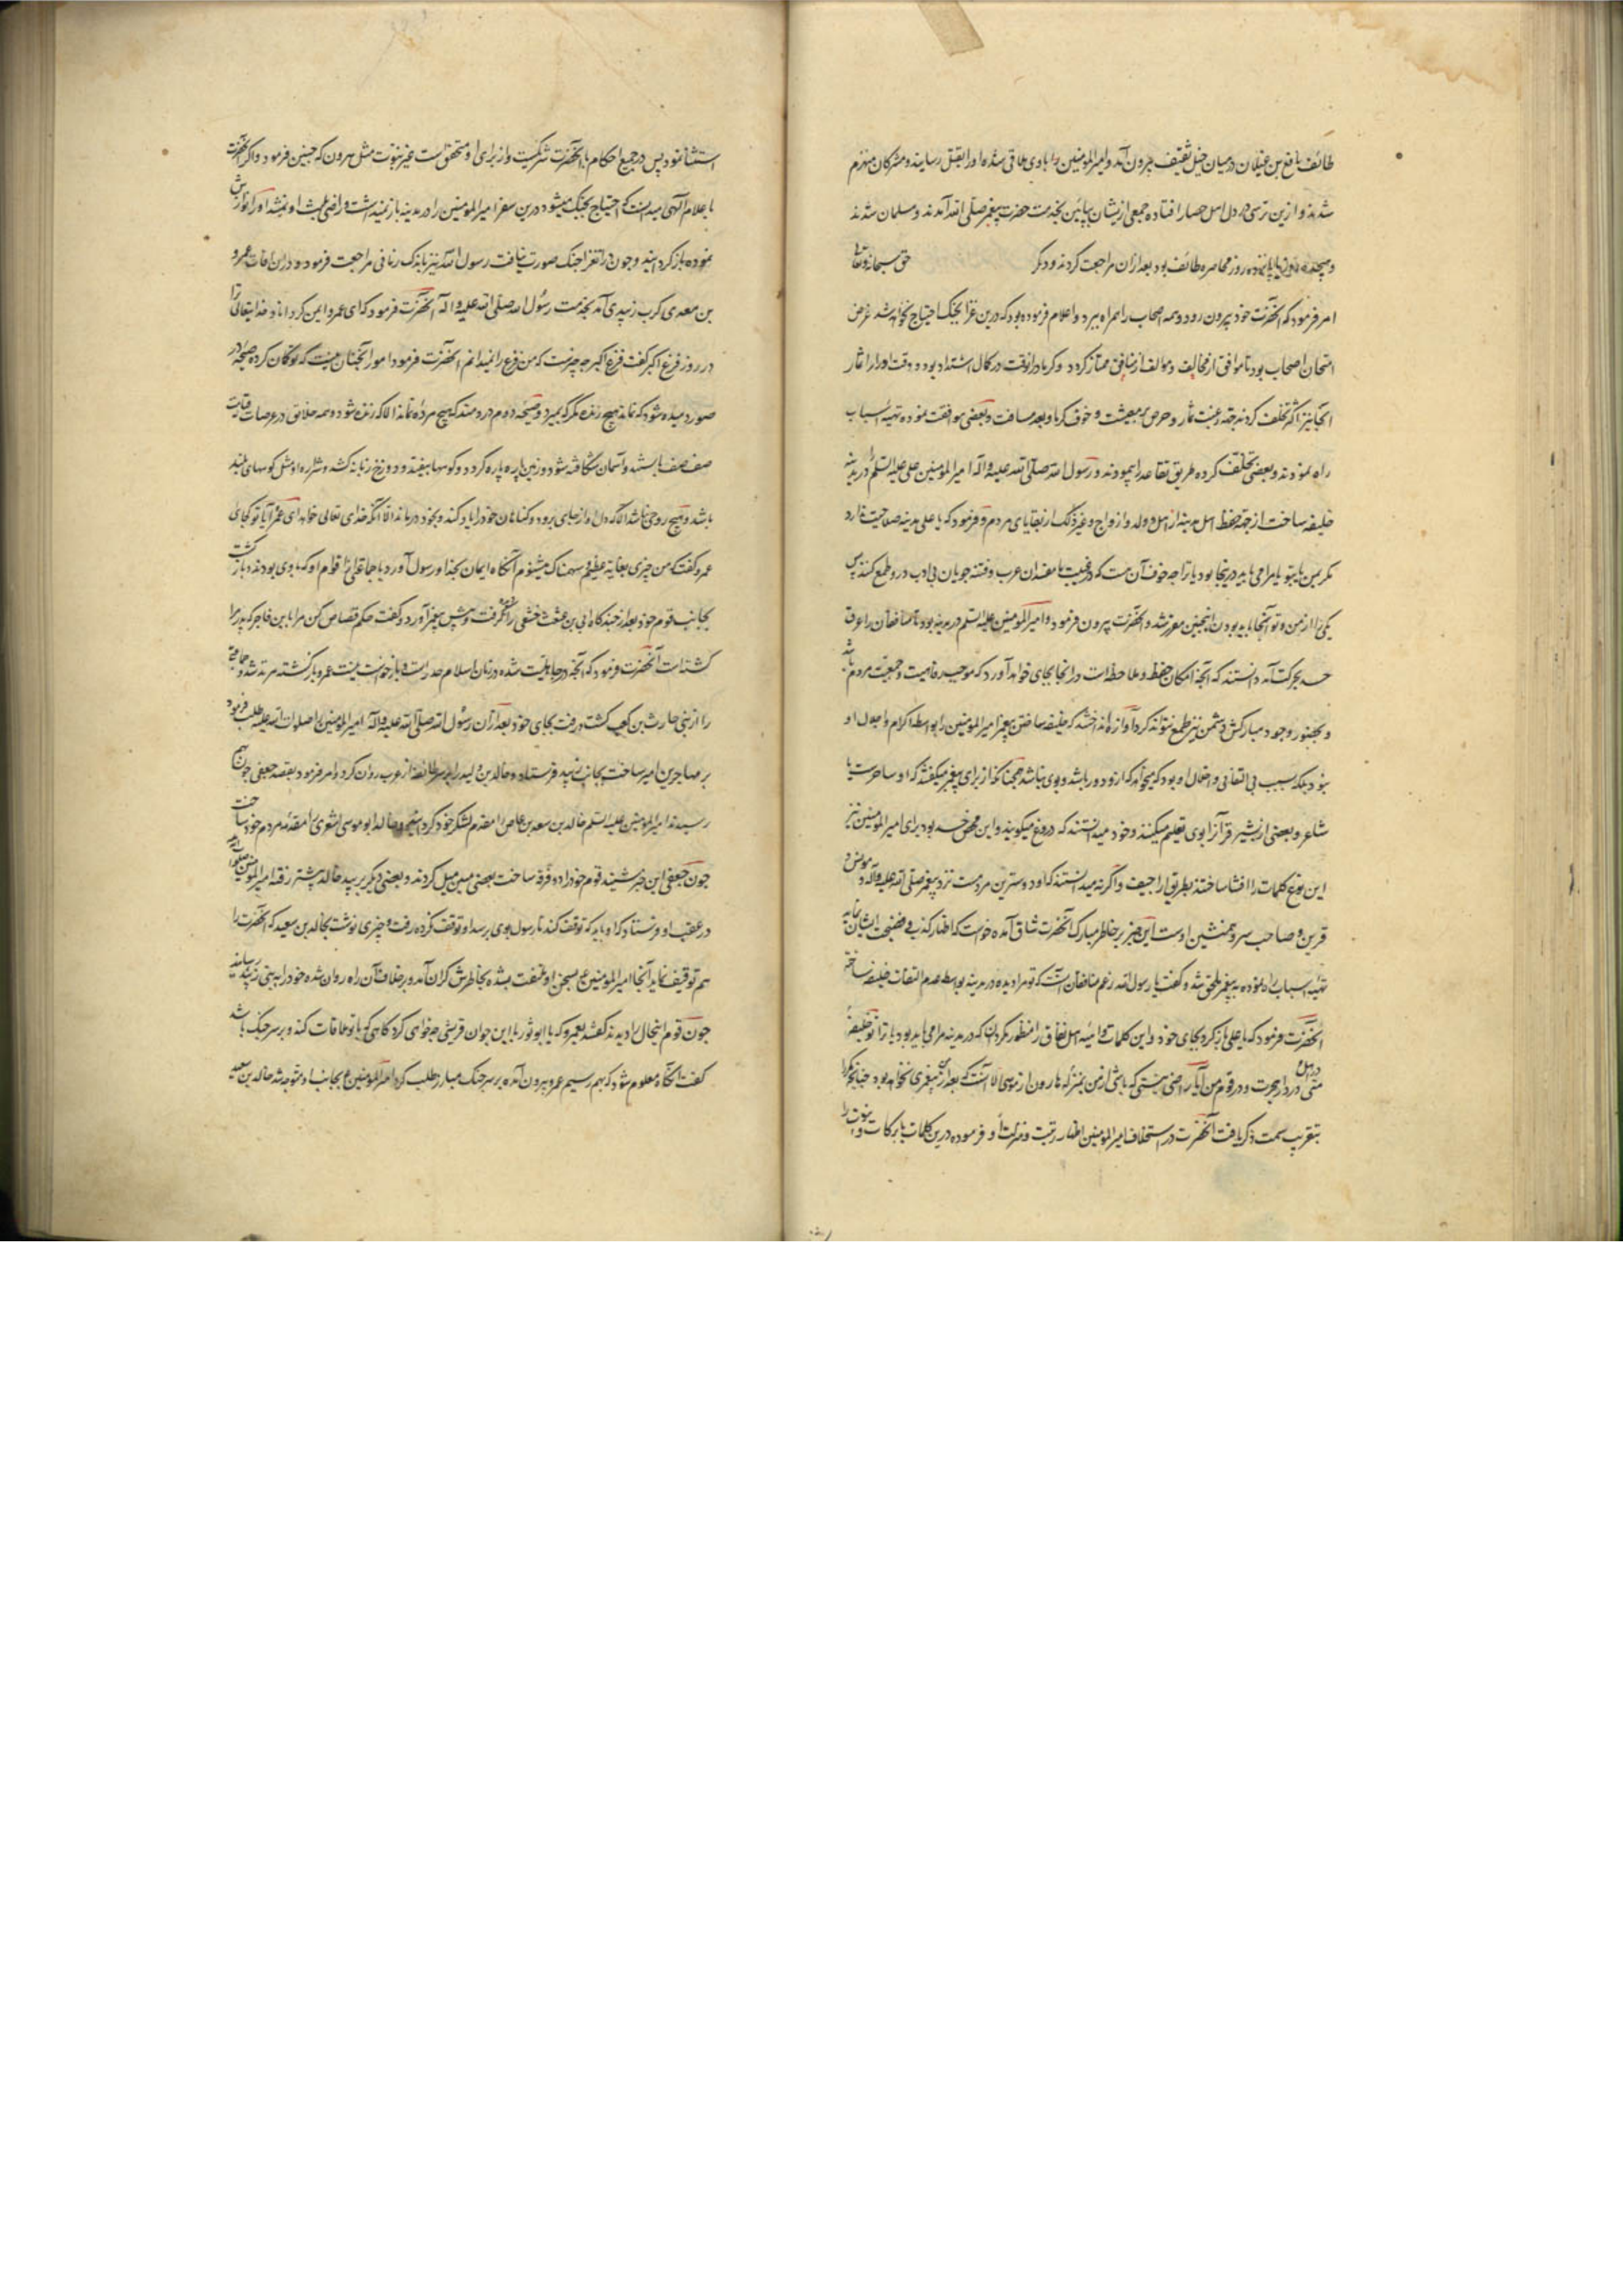 طائف نافع بن غیلان در میان خیل ثقیف بیرون آمد و امیرالمومنین را با وی ملاقی شده او را بقتل رسانید و مشرکان منهزم
شدند و ازین ترسی در دل اهل حصار افتاده جمعی ازیشان بپائین بخدمت حضرت پیغمبر صلی الله آمدند و مسلمان شدند
روز محاصره طائف بود بعد ازان مراجعت کردند و دیگر حق سبحانه و تعالی
امر فرمود که آنحضرت خود بیرون رود و همه اصحاب را همراه ببرد و اعلام فرموده بود که درین غزا بجنگ احتیاج نخواهد شد غرض
امتحان اصحاب بود تا موافق از مخالف و مولف از منافق ممتاز کردد و کرما درانوقت در کمال اشتداد بود و وقت ادراک اثمار
آنجا نیز اکثر تخلف کردند بجهة رغبت ثمار و حرص بمعیشت و خوف کرما و بعد مسافت و بعضی موافقت نموده تهیه اسباب
راه نمودند و بعضی تخلف کرده طریق تقاعد را پیمودند و رسول الله صلی الله علیه و آله امیرالمومنین علی علیه السلم را در مدینه
خلیفه ساخت از جهة حفظ اهل مدینه از اهل و ولد و ازواج و غیر ذلک از بقایای مردم و فرمود که یا علی مدینه صلاحیت ندارد
مگر بمن یا بتو یا مرا می باید درینجا بود یا ترا چه خوف آن هست که در غیبت ما مفسدان عرب و فتنه جویان بی ادب در و طمع کنند پس
یکی را از من و تو آنجا باید بودن اینچنین مقرر شد و آنحضرت بیرون فرمود و امیرالمومنین علیه السلم در مدینه بود تا منافقان را عرق
حسد بحرکت آمد دانستند که آنچه امکان حفظ و ملاحظه است در انجا بجای خواهد آورد که موجب رفاهیت و جمعیت مردم باشد
و بحضور وجود مبارکش دشمن نیز طمع نتواند کرد آوازه انداختند که خلیفه ساختن پیغمبر امیرالمومنین را بواسطه اکرام و اجلال او
نبود بلکه بسبب بی التفاتی و اهمال او بود که میخواهد که ازو دور باشد و بوی نباشد همچنانکه از برای پیغمبر میکفتند که او ساحرست یا
شاعر و بعضی از بشیر قرآنرا بوی تعلیم میکنند و خود میدانستند که دروغ میکویند و این محض حسد بود برای امیرالمومنین نیز
این نوع کلمات را افشا ساختند بطریق اراجیف و اکر نه میدانستند که او دوسترین مردمست نزد پیغمبر صلی الله علیه و آله و مونس و
قرین و صاحب سر و همنشین اوست این خبر بر خاطر مبارک آنحضرت شاق آمده خواست که اظهار کذب و فضیحت ایشان نماید
تهیه اسباب راه نموده به پیغمبر ملحق شد و کفت یا رسول الله زعم منافقان آنست که تو مرا دیده در مدینه بواسطه عدم التفات خلیفه ساختی
آنحضرت فرمود که یا علی باز کرد بجای خود و این کلمات اهل نفاق را منظور مکردان که در مدینه مرا می باید بود یا ترا تو خلیفه
منی در اهل و در دار هجرت و در قوم من آیا راضی نیستی که باشی از من بمنزله هارون از موسی الا آنست که بعد از من پیغمبری نخواهد بود چنانچه مکررا
بتقریب سمت ذکر یافت آنحضرت در استخلاف امیرالمومنین اظهار رتبت و منزلت او فرموده درین کلمات بابرکات و نبوت را
استثنا نمود پس در جمیع احکام با آنحضرت شرکیست و از برای او متحقق است غیر نبوت مثل هرون که چنین فرمود و اکر آنحضرت
باعلام الهی میدانست که احتیاج بجنک میشود درین سفر امیرالمومنین را در مدینه باز نمیداشت و راضی او نمیشد او را
نموده باز کردانید و چون دران غزا جنک صورت نیافت رسول الله نیز باندک زمانی مراجعت فرمود و دران اوقات عمرو
بن معدی کرب زبیدی آمد بخدمت رسول الله صلی الله علیه و آله آنحضرت فرمود که ای عمرو ایمن کرداناد خدایتعالی ترا
در روز فزع اکبر کفت فزع اکبر چه چیزست که من فزع را نمیدانم آنحضرت فرمود امور آنچنان نیست که تو کمان کرده صیحه در
صور دمیده شود که نماند هیچ زنده مکر که بمیرد و صیحه دوم در دمند که هیچ مرده نماند الا که زنده شود و همه خلایق در عرصات قیامت
صف صف بایستند و آسمان شکافته شود و زمین پاره پاره کردد و کوهها بیفتد و دوزخ زبانه کشد و شراره او مثل کوههای بلند
باشد و هیچ روحی نباشد الا که دل او از جای برود و کناهان خود را یاد کند و بخود درماند الا آنکه خدای تعالی خواهد ای عمرو آیا تو کجای
عمرو کفت که من چیزی بغایة عظیم سهمناک میشنوم آنکاه ایمان بخدا و رسول آورد با جماعتی از قوم او که با وی بودند و باز کشت
بجانب قوم خود بعد از چند کاه ابی بن عثعث خثعمی را کرفت و پیش پیغمبر آورد و کفت حکم قصاص کن مرا باین فاجر که پدر مرا
کشته است آنحضرت فرمود که آنچه در جاهلیت شده در زمان اسلام هدرست و بازخواست نیست عمرو بازکشته مرتد شد و جماعتی
را از بنی حارث بن کعب کشت و رفت بجای خود بعد ازان رسول الله صلی الله علیه و آله امیرالمومنین را صلوات الله علیه طلب فرمود
بر مهاجرین امیر ساخت بجانب بنی زبید فرستاد و خالد بن ولید را بر سر طائفه از عرب روان کرد و امر فرمود بقصد جعفی چون بهم
رسیدند امیرالمومنین علیه السلم خالد بن سعید بن عاص را مقدم لشکر خود کردانید و خالد ابو موسی اشعری را مقدمه مردم خود ساخت
چون جعفی این خبر شنید قوم خود را دو فرقه ساخت بعضی بیمن میل کردند و بعضی دیکر به زبید خالد پیشتر رفته امیرالمومنین
در عقب او فرستاد که او باید که توقف کند تا رسول بوی برسد او توقف نکرده رفت و چیزی نوشت بخالد بن سعید که آنحضرت را
هم توقیف نماید آنجا امیرالمومنین ع بسخن او ملتفت نشده بخاطرش کران آمد و بر خلاف آن راه روان شده خود را به بنی زبید رسانید
چون قوم اینحال را دیدند کفتند بعمرو که یا ابو ثور با این جوان قریشی چه خواهی کرد کاهی که با تو ملاقات کند و بر سر جنک باشد
کفت آنکاه معلوم شود که بهم رسیم عمرو بیرون آمده بر سر جنک مبارز طلب کرد امیرالمومنین ع بجانب او متوجه شد خالد بن سعید